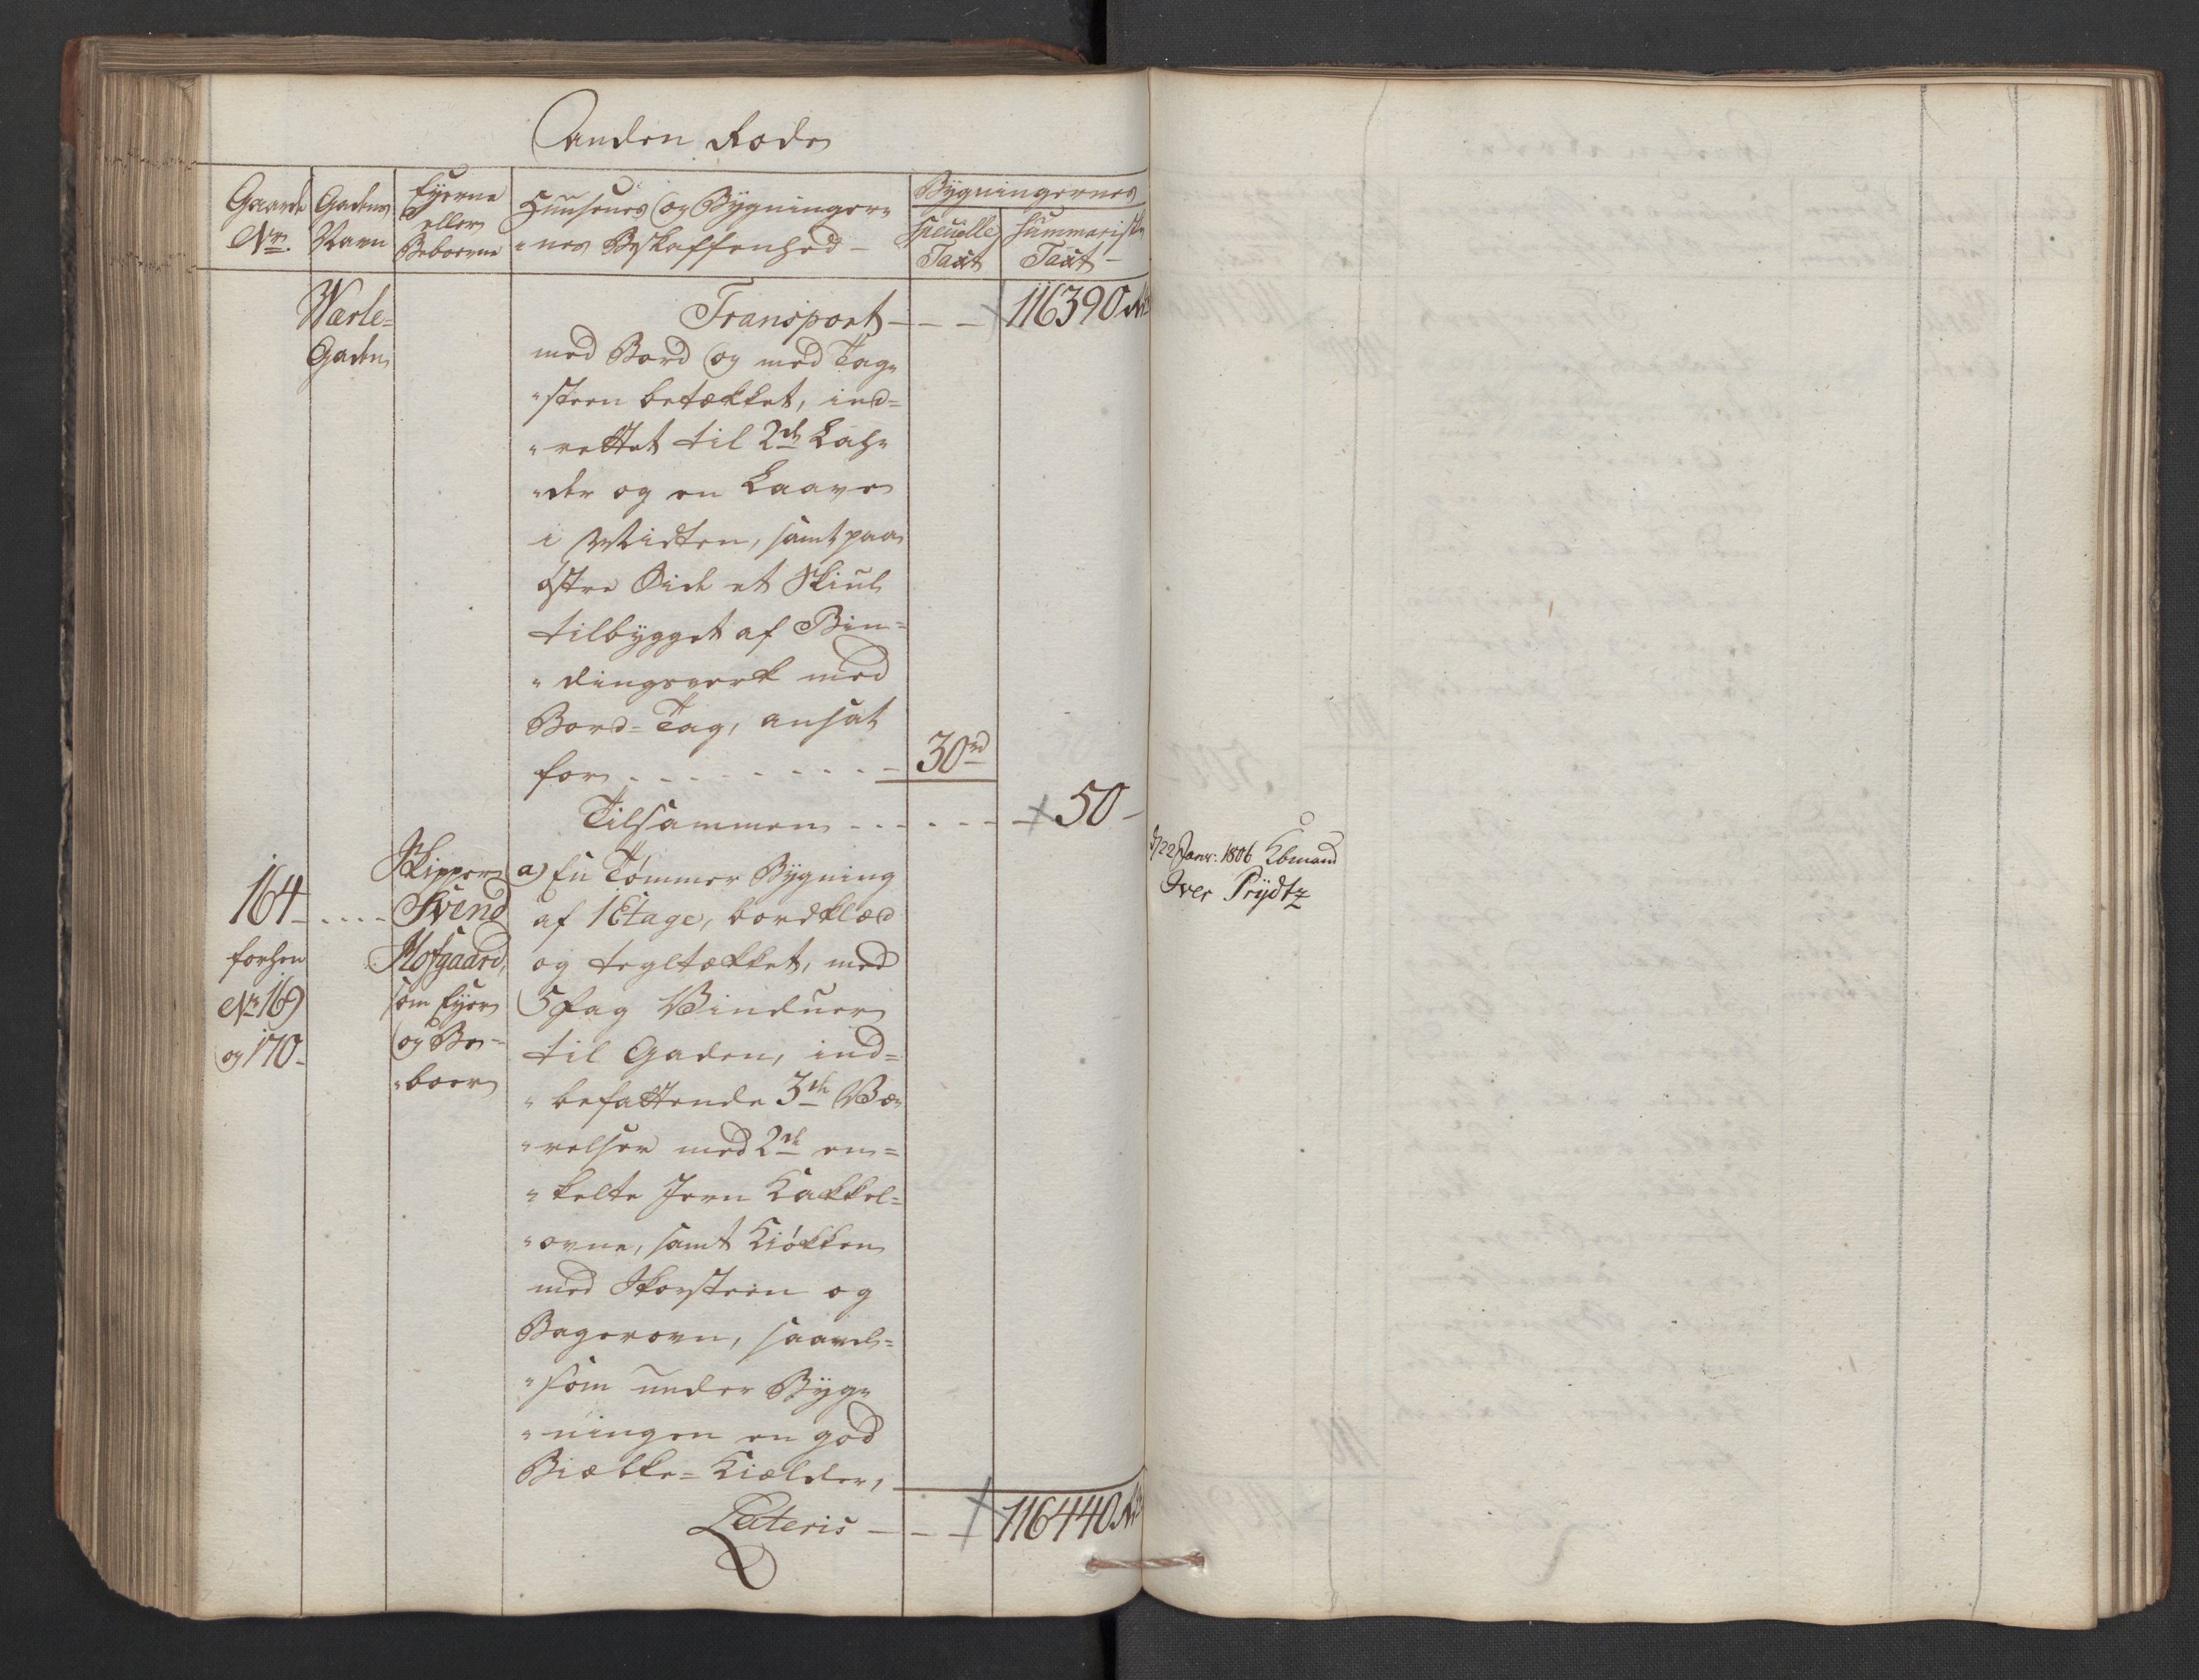 Anden Rode
Gaards No.
Gadens Navn
Eyerne eller Beboerne
Huusenes og Bygninger-
-nes Beskaffenhed -
Bygningernes
specielle Taxt
summariske Taxt -
Værle-
Gaden
Transport - - - 116390 Rd
med Bord og med Tag-
-steen betækket, ind-
-rettet til 2de Lah-
-der og en Laave
i Midten, samt paa
østre Side et Skiul
tilbygget af Bin-
-dingsverk med
Bord-Tag, ansat
for - - - - - - - - 30rd
Tilsammen - - - - - - 50 -
164 - - - -
forhen
No 169
og 170 -
Skipper
Svend
Hofgaard,
som Eyer
og Be-
-boer
a) En Tømmer Bygning
af 1 Etage, bordklæd
og tegltækket, med
5 Fag Vinduer
til Gaden, ind-
-befattende 3de Væ-
-relser med 2de en-
-kelte Jern Kakkel-
-ovne, samt Kiøkken
med Skorsteen og
Bagerovn, saavel-
-som under Byg-
-ningen en god
Bielke-Kielder,
Lateris - - - 116440 Rd
d/22 Janr. 1806 Kbmand
Iver Prydtz